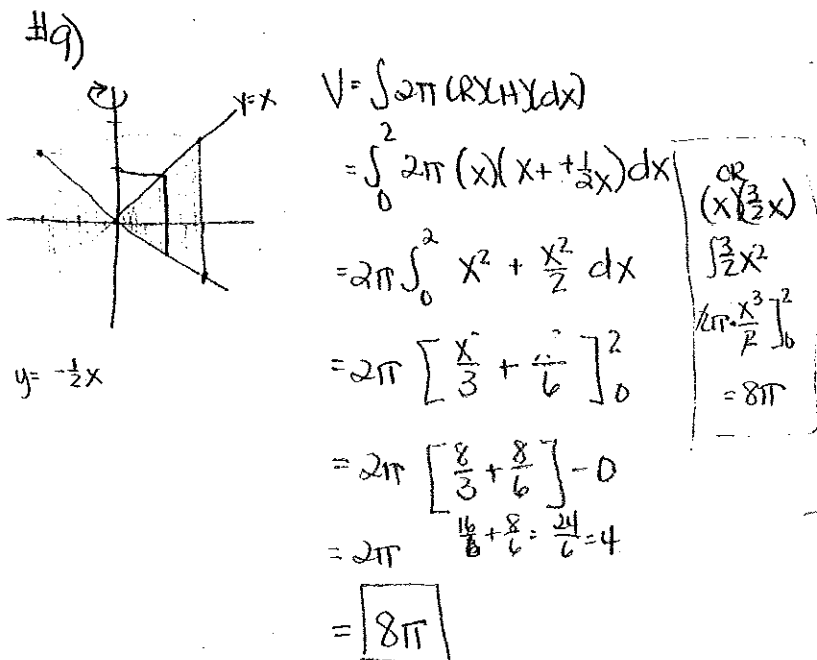 #9)
y=x
y= -1/2x
V= ∫2π(R)(H)(dx)
= ∫₀² 2π (x)(x+ +1/2x) dx
= 2π ∫₀² x² + x²/2 dx
= 2π [ x/3 + /6 ]₀²
= 2π [ 8/3 + 8/6 ] - 0
= 2π 16/6 + 8/6 = 24/6 = 4
= 8π
OR
(x)(3/2x)
∫3/2x²
2π· x³/2 ]₀²
= 8π